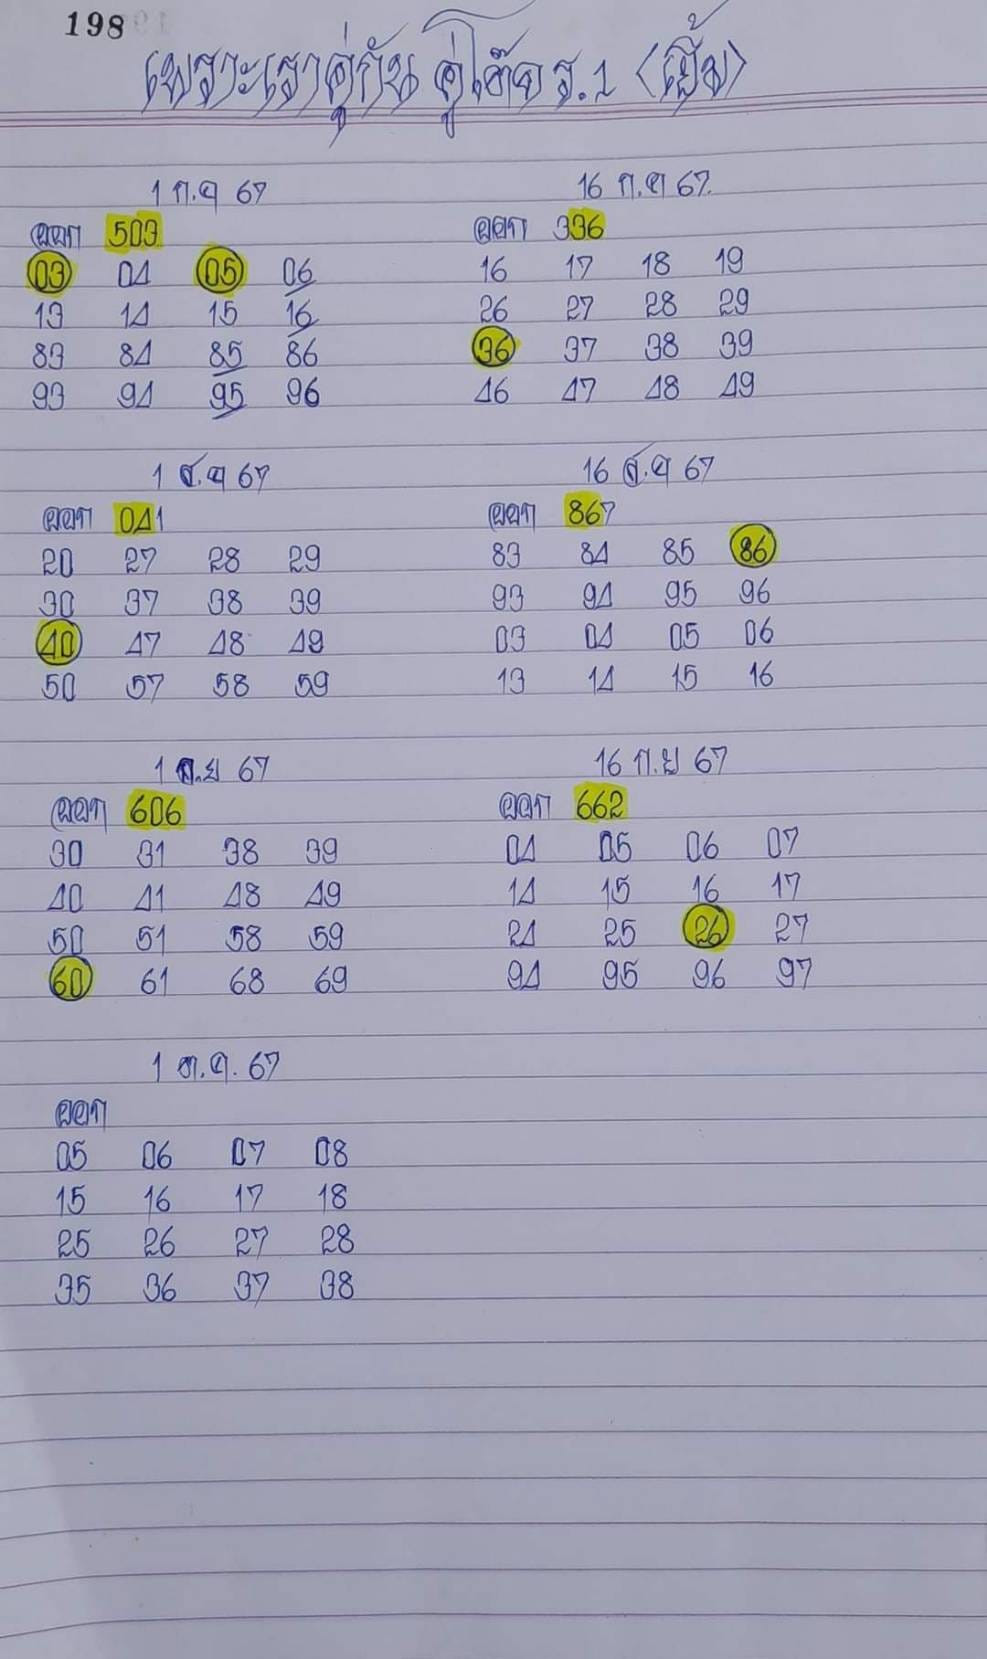 198
เพราะเราคู่กัน คู่โต๊ด ร.1 (เยิ้ม)
1 ก.ค 67
ออก 503
03 04 05 06
13 14 15 16
83 84 85 86
93 94 95 96
16 ก.ค 67
ออก 336
16 17 18 19
26 27 28 29
36 37 38 39
46 47 48 49
1 ส.ค 67
ออก 041
20 27 28 29
30 37 38 39
40 47 48 49
50 57 58 59
16 ส.ค 67
ออก 867
83 84 85 86
93 94 95 96
03 04 05 06
13 14 15 16
1 ก.ย 67
ออก 606
30 31 38 39
40 41 48 49
50 51 58 59
60 61 68 69
16 ก.ย 67
ออก 662
04 05 06 07
14 15 16 17
24 25 26 27
94 95 96 97
1 ต.ค. 67
ออก
05 06 07 08
15 16 17 18
25 26 27 28
35 36 37 38